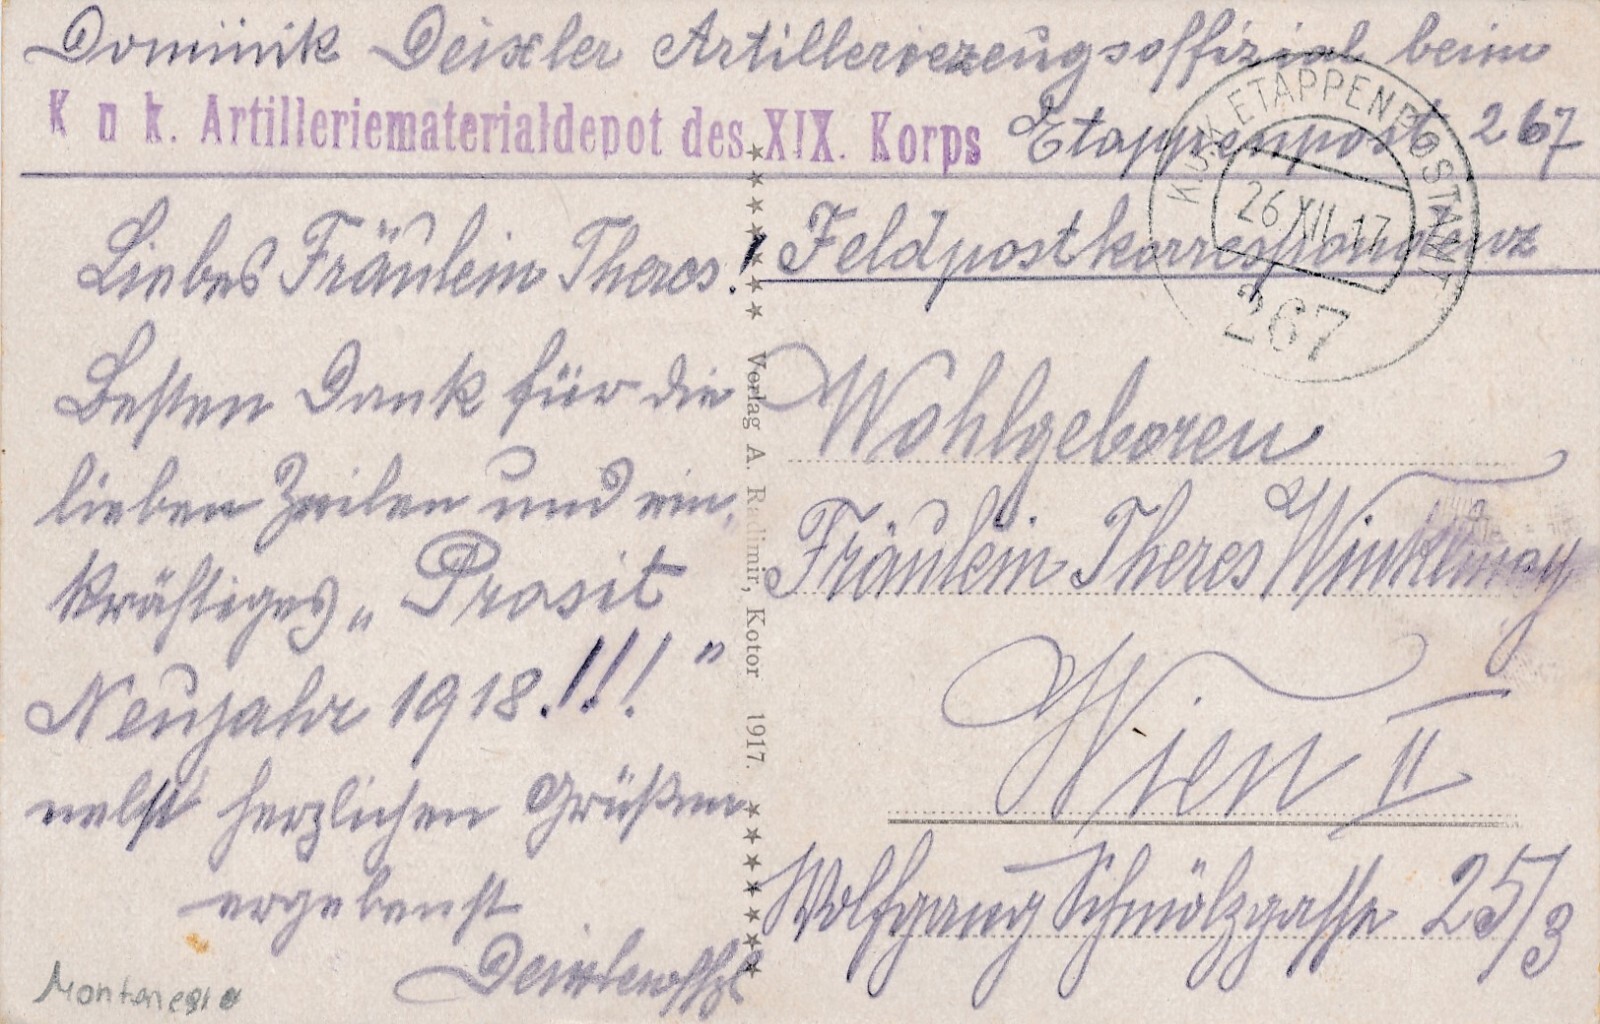 Dominik Deixler Artilleriezeugsoffizial beim
K u k. Artilleriematerialdepot des XIX. Korps
Etappenpost 267
K.u.K. ETAPPENPOSTAMT
26.XII.17
267
Feldpostkorrespondenz
Liebes Fräulein Theres!
Besten Dank für die
lieben Zeilen und ein
kräftiges „Prosit
Neujahr 1918!!!"
nebst herzlichen Grüßen
ergebenst
Deixler
Montenegro
Verlag A. Radimir, Kotor 1917.
Wohlgeboren
Fräulein Theres Winklmay
Wien II
Wolfgang Schmölzgasse 25/3